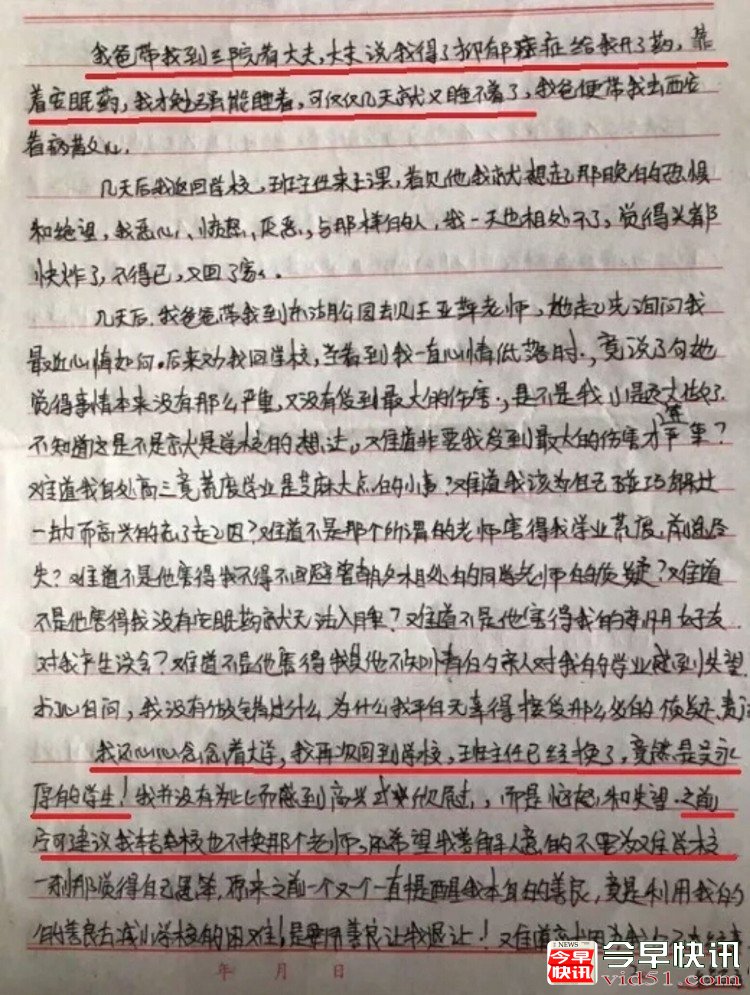 我爸带我到三院看大夫,大夫说我得了抑郁症症给我开了药,靠
着安眠药,我才勉强能睡着,可仅仅几天就又睡不着了,我爸便带我出西安
看病散心.
几天后我返回学校,班主任来上课,看见他我就想起那晚的恐惧
和绝望,我恶心、愤怒、厌恶,与那样的人,我一天也相处不了,觉得头都
快炸了,不得已,又回了家.
几天后,我爸爸带我到东湖公园去见王亚萍老师,她起先询问我
最近心情如何。后来劝我回学校,当看到我一直心情低落时,竟说了句她
觉得事情本来没有那么严重,又没有受到最大的伤害,是不是我小题大做了.
不知道这是不是就是学校的想法。难道非要我受到最大的伤害才算严重?
难道我身处高三竟荒废学业是芝麻大点的小事?难道我该为自己碰巧躲过
一劫而高兴的忘了起因?难道不是那个所谓的老师害得我学业荒废,前途尽
失?难道不是他害得我不得不回避曾朝夕相处的同学老师的质疑?难道
不是他害得我没有安眠药就无法入睡?难道不是他害得我的亲朋好友
对我产生误会?难道不是他害得我其他不知情的亲人对我的学业感到失望
扪心自问,我没有做错过什么,为什么我平白无辜得接受那么多的质疑、责
我还心心念念着大学,我再次回到学校,班主任已经换了,竟然是吴永
厚的学生!我并没有为此而感到高兴或欣慰,而是恼怒和失望.之前
宁可建议我转学校也不换那个老师,还希望我善解人意的不要为难学校
一刹那觉得自己愚笨,原来之前一个又一个直提醒我本身的善良,竟是利用我的
的善良去减小学校的困难!是要用善良让我退让!难道
年 月 日
NEWS
今早快讯
今早快讯
vid51.com